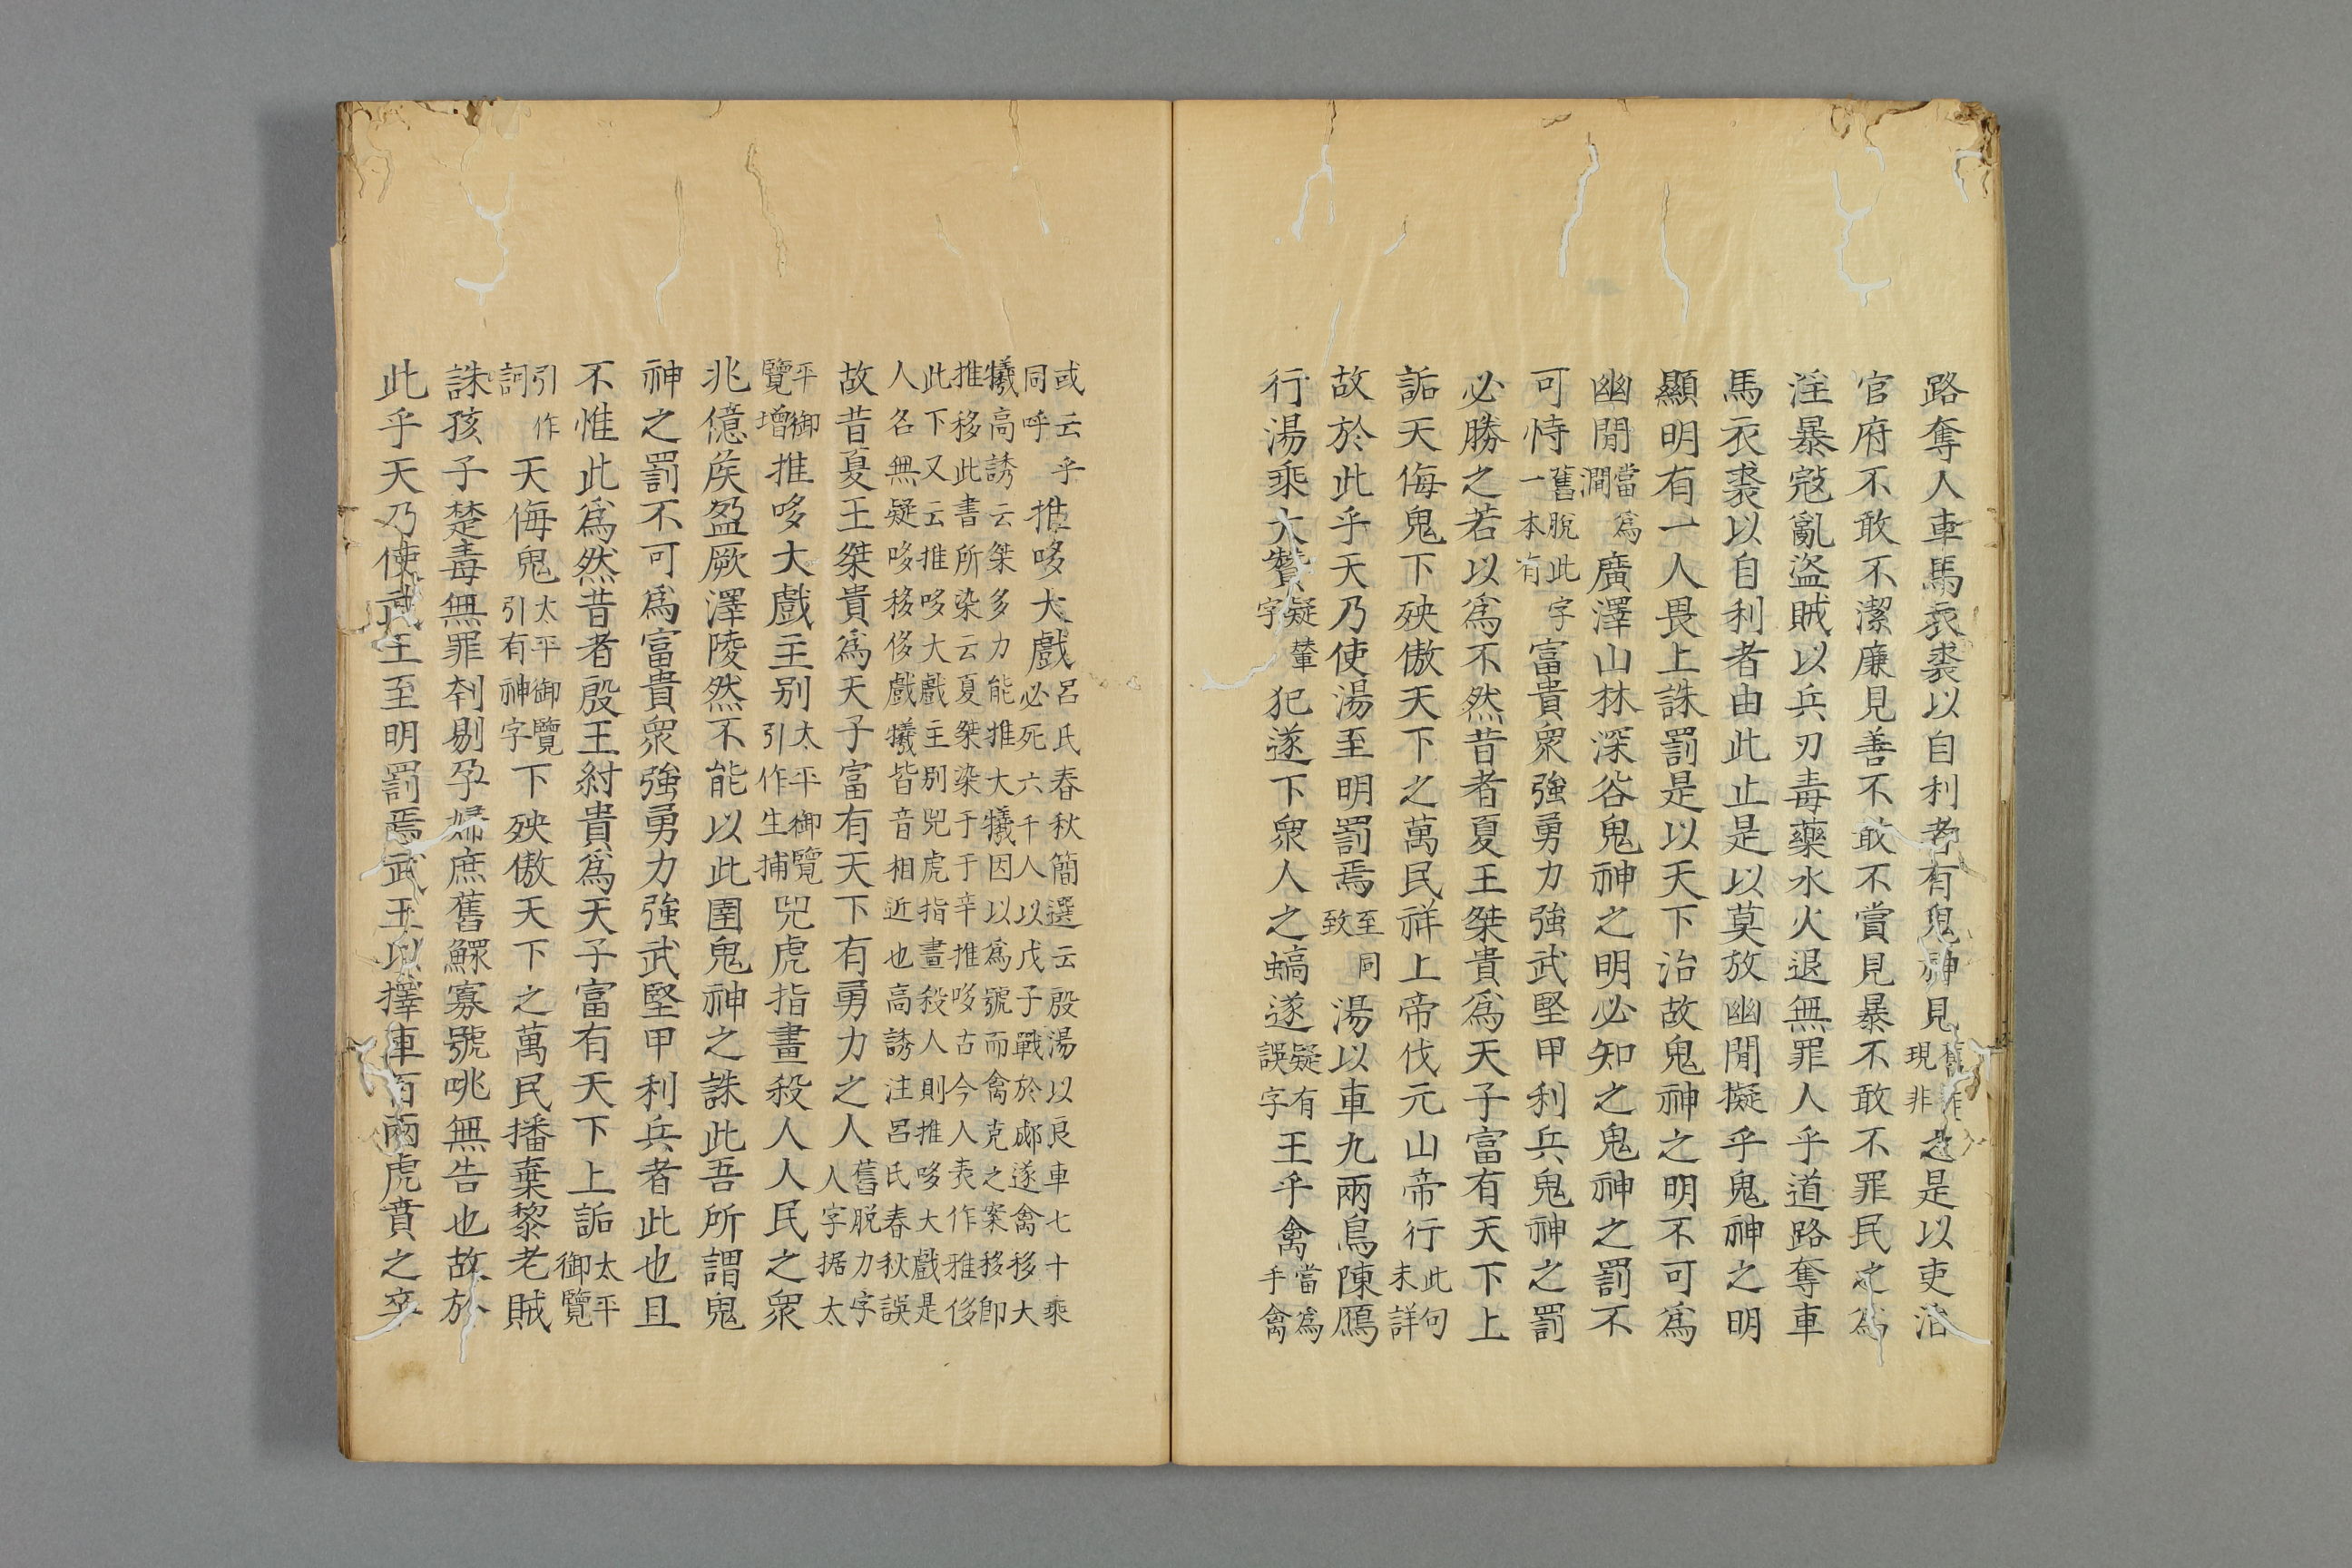 路奪人車馬衣裘以自利者有鬼神見舊作現非之是以吏治
官府不敢不潔廉見善不敢不賞見暴不敢不罪民之為
淫暴寇亂盜賊以兵刃毒藥水火退無罪人乎道路奪車
馬衣裘以自利者由此止是以莫放幽閒擬乎鬼神之明
顯明有一人畏上誅罰是以天下治故鬼神之明不可為
幽閒當為澗廣澤山林深谷鬼神之明必知之鬼神之罰不
可恃舊脫此字一本有富貴眾強勇力強武堅甲利兵鬼神之罰
必勝之若以為不然昔者夏王桀貴為天子富有天下上
詬天侮鬼下殃傲天下之萬民祥上帝伐元山帝行此句未詳
故於此乎天乃使湯至明罰焉至同致湯以車九兩鳥陳鴈
行湯乘大贊疑輦字犯遂下眾人之蝺遂疑有誤字王乎禽當為手禽
或云乎同呼推哆大戲呂氏春秋簡選云殷湯以良車七十乘必死六千人以戊子戰於郕遂禽移大
犧高誘云桀多力能推大犧因以為號而禽克之案移即推移此書所染云夏桀染于干辛推哆古今人表作雅侈
此下又云推哆大戲主別兕虎指畫殺人則推哆大戲是人名無疑哆移侈戲犧皆音相近也高誘注呂氏春秋誤
故昔夏王桀貴為天子富有天下有勇力之人舊脫力字人字据太
平御覽增推哆大戲主別太平御覽引作生捕兕虎指畫殺人人民之眾
兆億矦盈厥澤陵然不能以此圉鬼神之誅此吾所謂鬼
神之罰不可為富貴眾強勇力強武堅甲利兵者此也且
不惟此為然昔者殷王紂貴為天子富有天下上詬太平御覽
引作訶天侮鬼太平御覽引有神字下殃傲天下之萬民播棄黎老賊
誅孩子楚毒無罪刳剔孕婦庶舊鰥寡號咷無告也故於
此乎天乃使武王至明罰焉武王以擇車百兩虎賁之卒